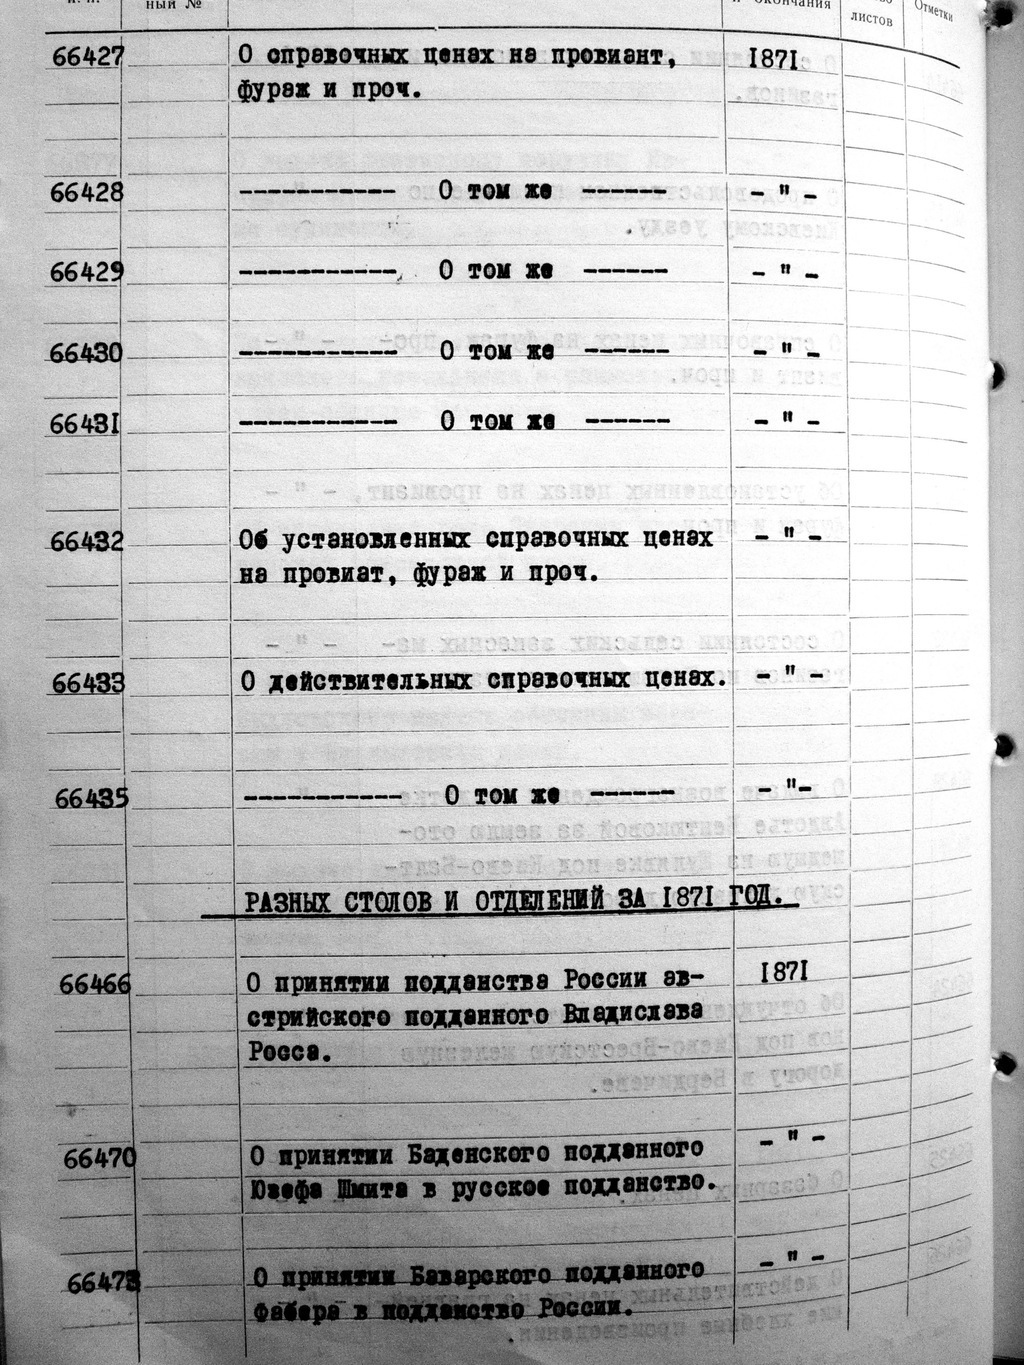 ный № и окончания листов Отметки
66427 О справочных ценах на провиант, 1871
фураж и проч.
66428 ----------- О том же ------ - " -
66429 ----------- О том же ------ - " -
66430 ----------- О том же ------ - " -
66431 ----------- О том же ------ - " -
66432 Об установленных справочных ценах - " -
на провиат, фураж и проч.
66433 О действительных справочных ценах. - " -
66435 ----------- О том же ------ - "-
РАЗНЫХ СТОЛОВ И ОТДЕЛЕНИЙ ЗА 1871 ГОД.
66466 О принятии подданства России ав- 1871
стрийского подданного Владислава
Росса.
66470 О принятии Баденского подданного - " -
Юзефа Шмита в русское подданство.
О принятии Баварского подданного - " -
Фабера в подданство России.